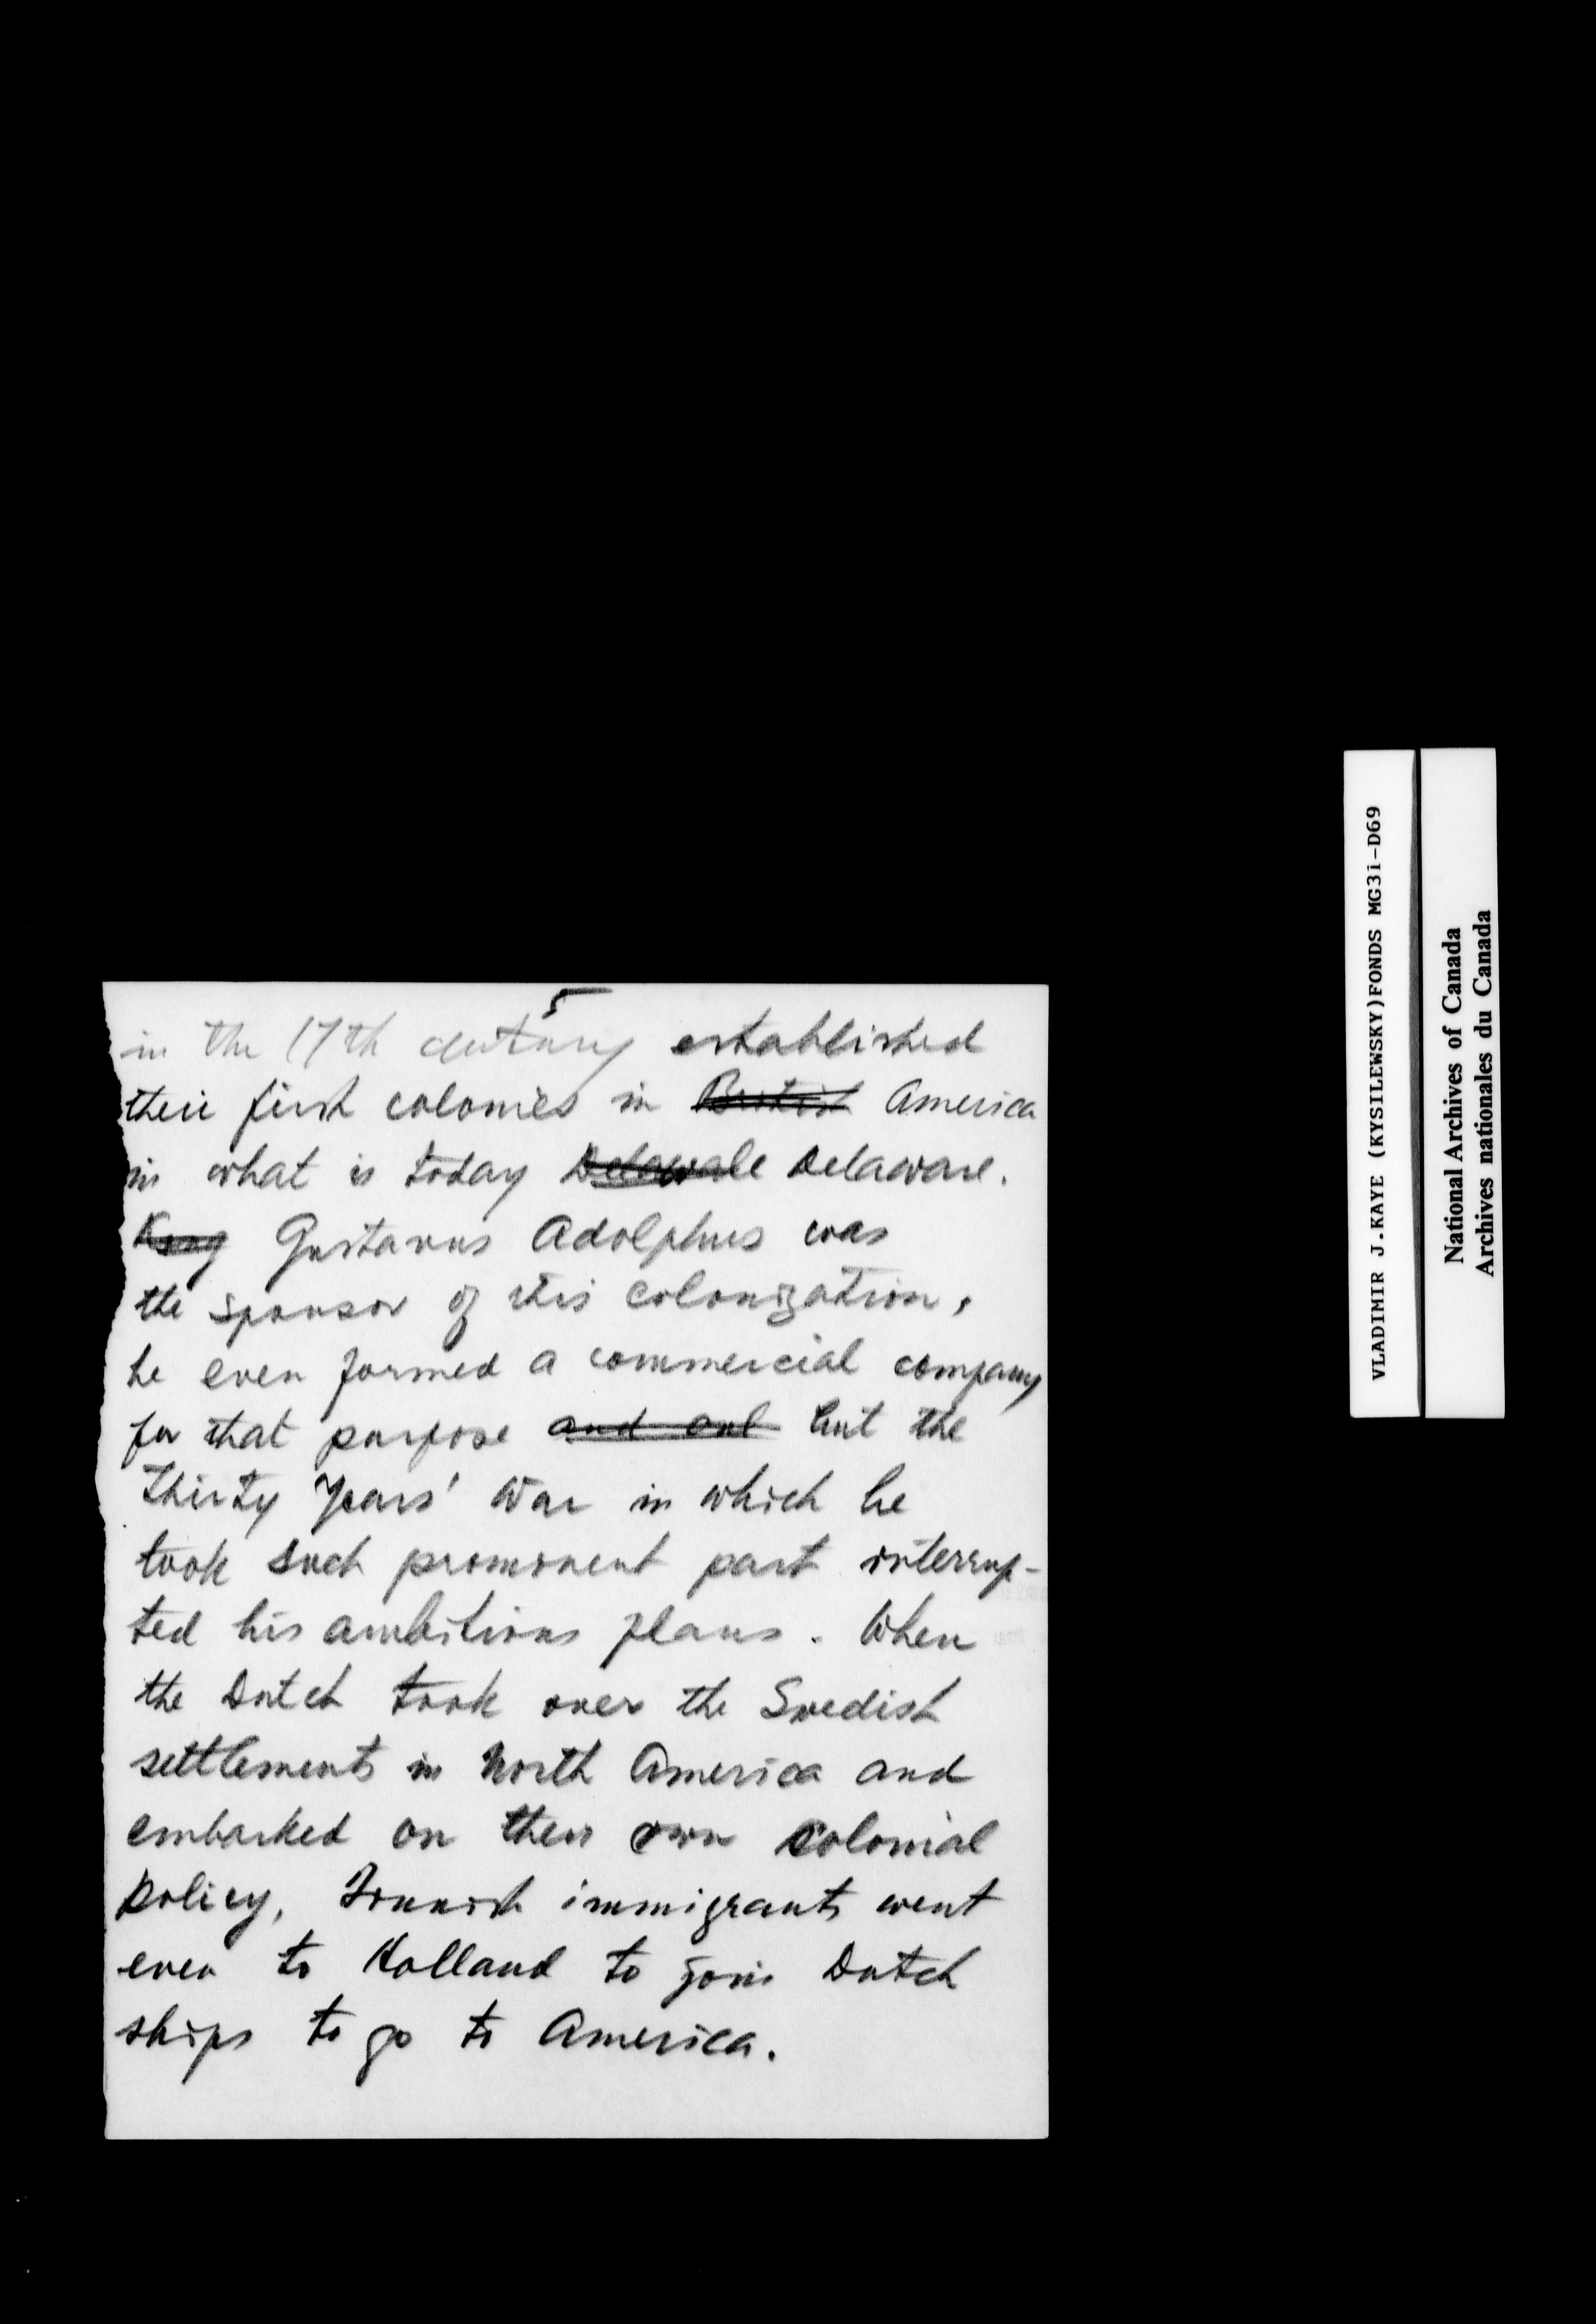 5
in the 17th century established
their first colonies in British America
in what is today Delawale Delaware.
King Gustavus Adolphus was
the sponsor of this colonization,
he even formed a commercial company
for that purpose and onl but the
Thirty Years' War in which he
took such prominent part interrup-
ted his ambitious plans. When
the Dutch took over the Swedish
settlements in North America and
embarked on their own colonial
policy, Finnish immigrants went
even to Holland to join Dutch
ships to go to America.
VLADIMIR J.KAYE (KYSILEWSKY)FONDS MG31-D69
National Archives of Canada
Archives nationales du Canada